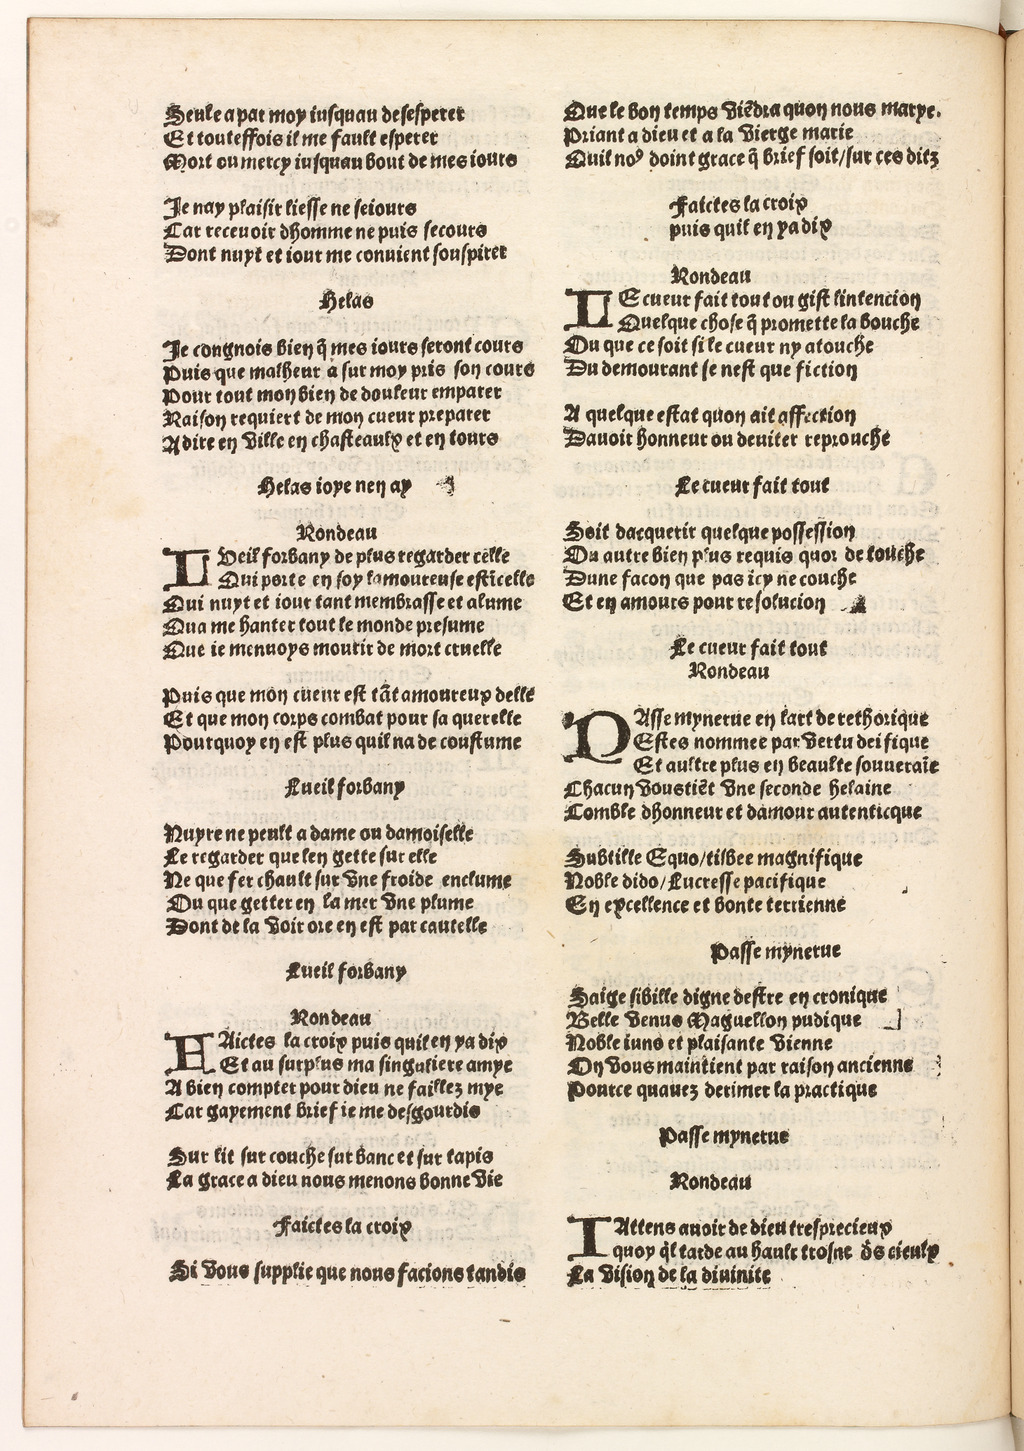 Seule a par moy iusquau desesperer
Et touteffois il me fault esperer
Mort ou mercy iusquau bout de mes iours
Je nay plaisir liesse ne seiours
Car recevoir dhomme ne puis secours
Dont nuyt et iour me convient souspirer
Helas
Je congnois bien q̃ mes iours seront cours
Puis que malheur a sur moy pris son cours
Pour tout mon bien de douleur emparer
Raison requiert de mon cueur preparer
A dire en ville en chasteaulx et en tours
Helas ioye nen ay
Rondeau
Lueil forbany de plus regarder celle
Qui porte en soy lamoureuse estĩcelle
Qui nuyt et iour tant membrasse et alume
Qua me hanter tout le monde presume
Que ie menuoys mourir de mort cruelle
Puis que mon cueur est tãt amoureux delle
Et que mon corps combat pour sa querelle
Pourquoy en est plus quil na de coustume
Lueil forbany
Nuyre ne peult a dame ou damoiselle
Le regarder que len gette sur elle
Ne que fer chault sur vne froide enclume
Ou que getter en la mer vne plume
Dont de la voir ore en est par cautelle
Lueil forbany
Rondeau
FAictes la croix puis quil en ya dix
Et au surplus ma singuliere amye
A bien compter pour dieu ne faillez mye
Car gayement brief ie me desgourdis
Sur lit sur couche sur banc et sur tapis
La grace a dieu nous menons bonne vie
Faictes la croix
Si vous supplie que nous facions tandis
Que le bon temps viẽdra quon nous marye.
Priant a dieu et a la vierge marie
Quil noꝰ doint grace q̃ brief soit/sur ces ditz
Faictes la croix
puis quil en ya dix
Rondeau
LE cueur fait tout ou gist lintencion
Quelque chose q̃ promette la bouche
Ou que ce soit si le cueur ny atouche
Du demourant se nest que fiction
A quelque estat quon ait affection
Dauoir honneur ou deuiter reprouche
Le cueur fait tout
Soit dacquerir quelque possession
Ou autre bien plus requis quor de touche
Dune facon que pas icy ne couche
Et en amours pour resolucion
Le cueur fait tout
Rondeau
PAsse mynerue en lart de rethorique
Estes nommee par vertu deifique
Et aultre plus en beaulte souueraĩe
Chacun vous tiẽt vne seconde helaine
Comble dhonneur et damour autenticque
Subtille Equo/tisbee magnifique
Noble dido/Lucresse pacifique
En excellence et bonte terrienne
Passe mynerue
Saige sibille digne destre en cronique
Belle Venus Maguellon pudique
Noble iuns et plaisante Vienne
On vous maintient par raison ancienne
Pource quauez derimer la practique
Passe mynerue
Rondeau
IAttens auoir de dieu tresprecieux
quoy q̃l tarde au hault trosne d̃s cieulx
La vision de la diuinite